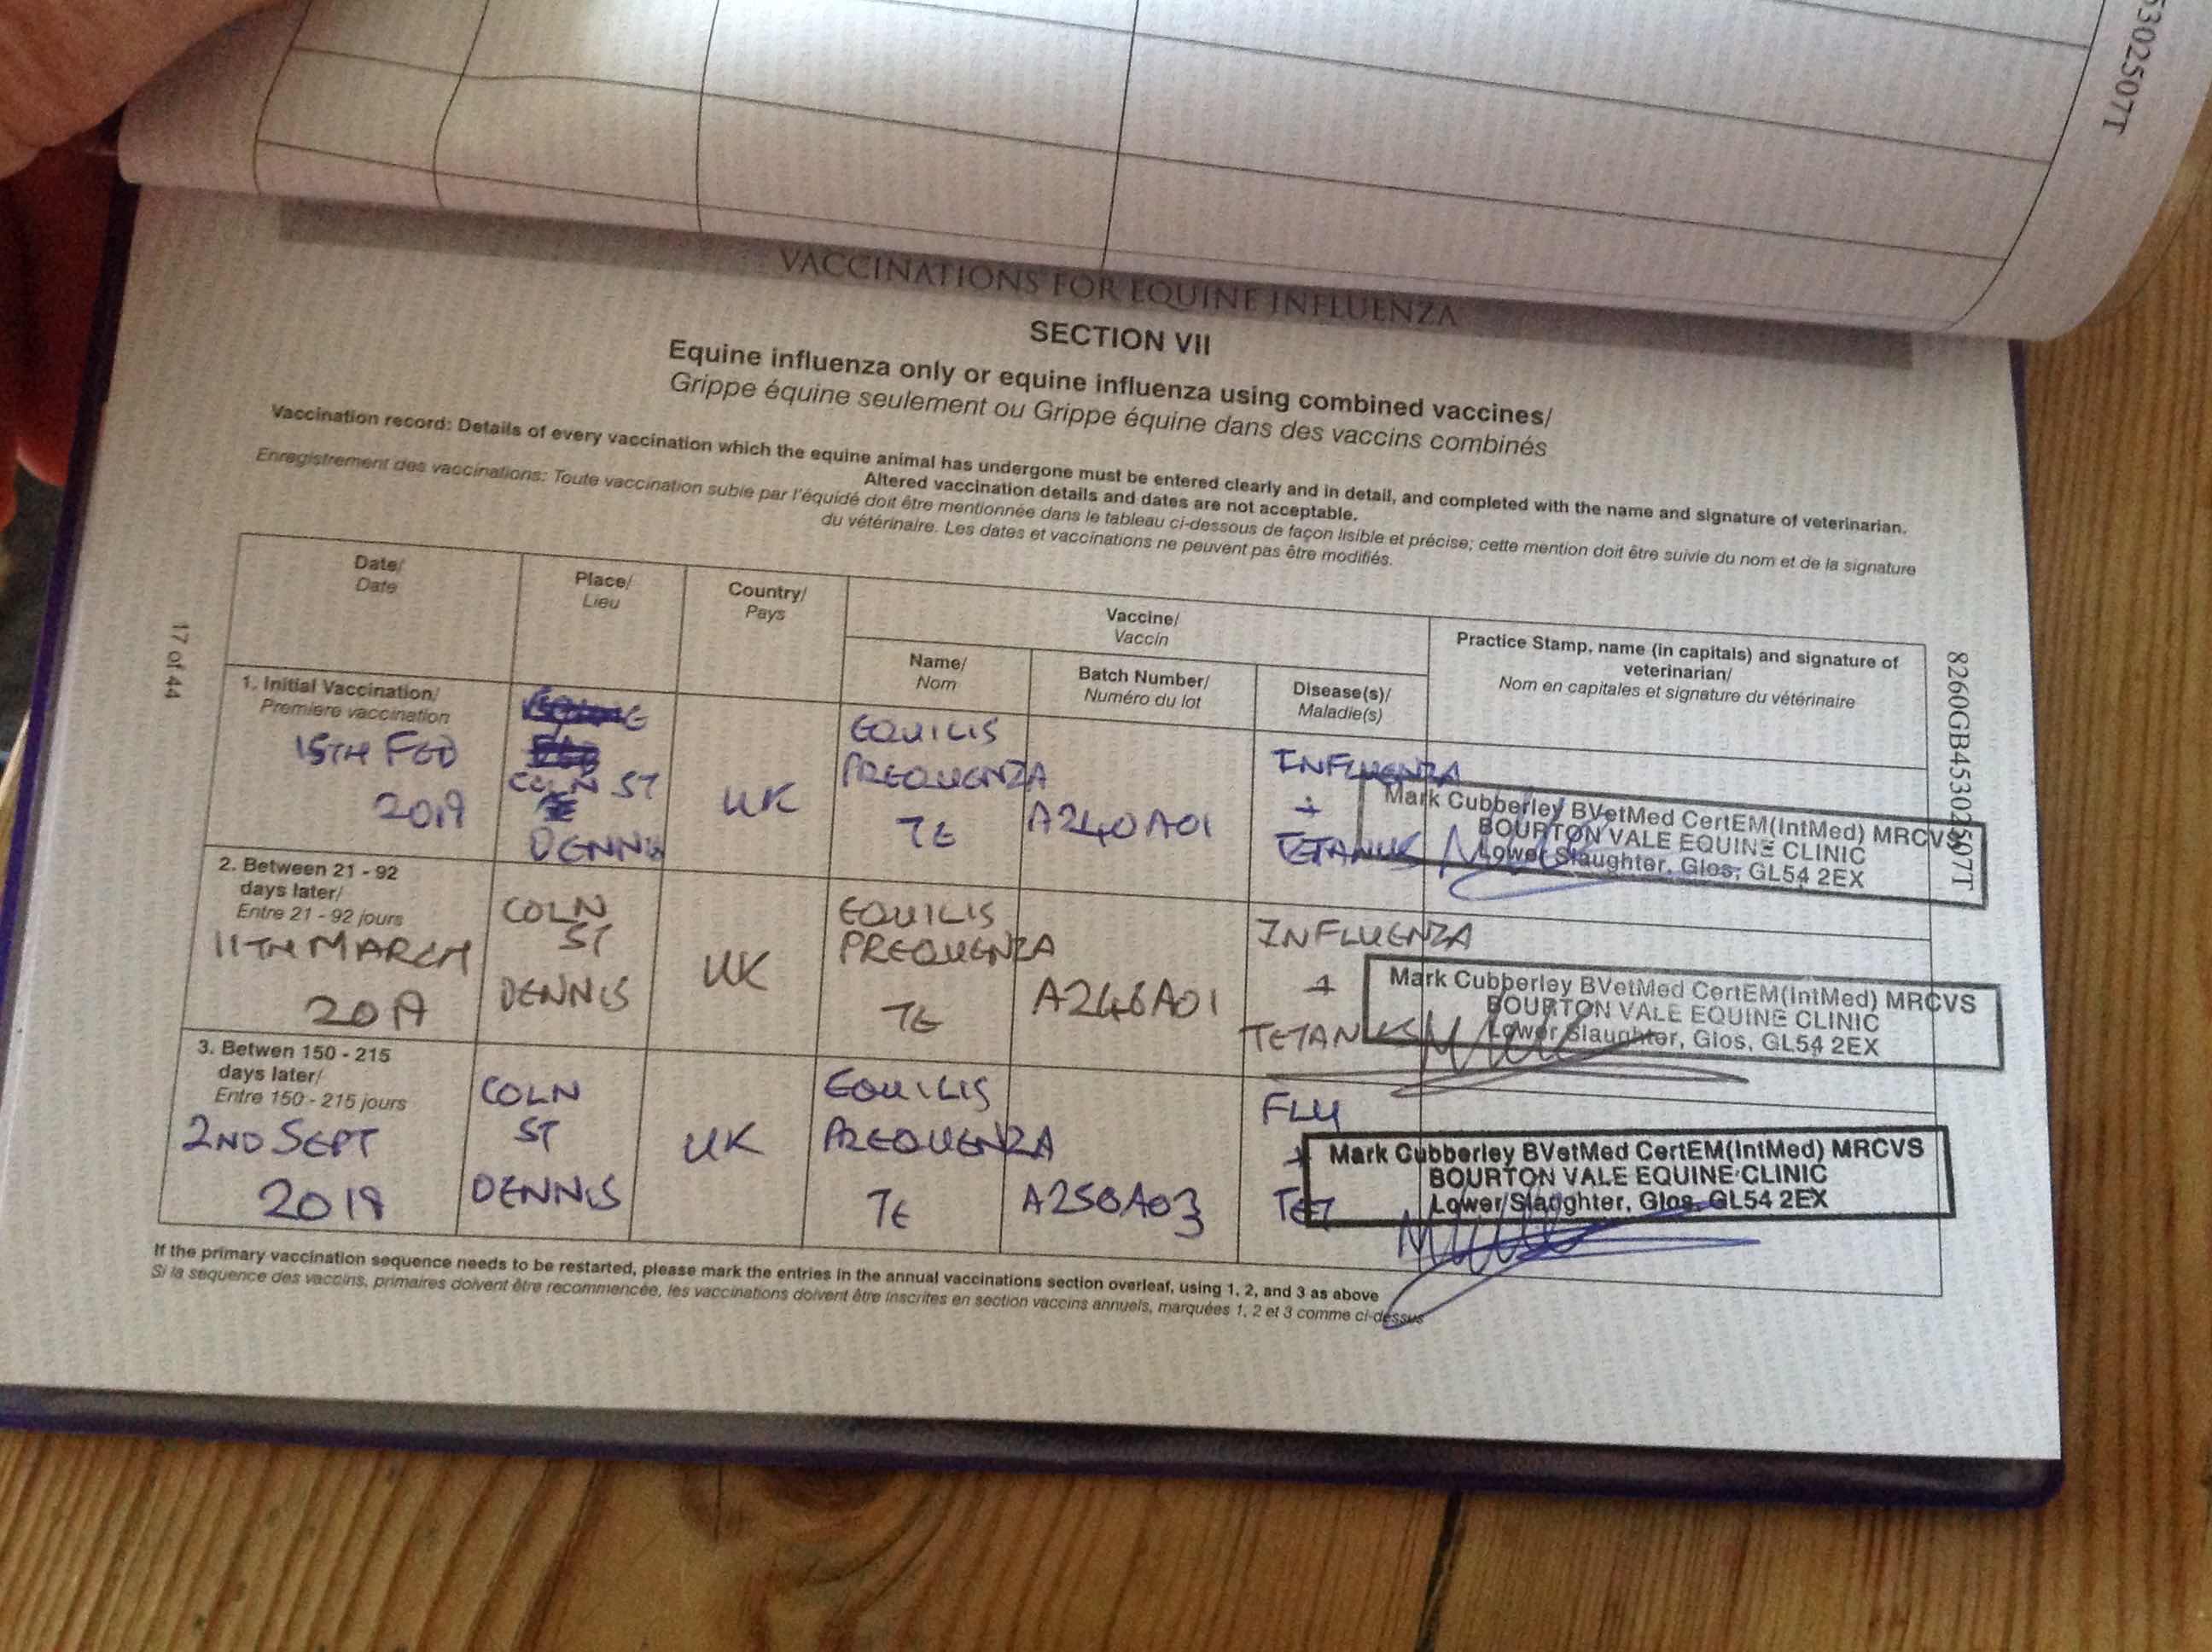 5302507T
VACCINATIONS FOR EQUINE INFLUENZA
SECTION VII
Equine influenza only or equine influenza using combined vaccines/
Grippe équine seulement ou Grippe équine dans des vaccins combinés
Vaccination record: Details of every vaccination which the equine animal has undergone must be entered clearly and in detail, and completed with the name and signature of veterinarian.
Altered vaccination details and dates are not acceptable.
Enregistrement des vaccinations: Toute vaccination subie par l'équidé doit être mentionnée dans le tableau ci-dessous de façon lisible et précise; cette mention doit être suivie du nom et de la signature
du vétérinaire. Les dates et vaccinations ne peuvent pas être modifiés.
17 of 44
8260GB45302507T
Date/
Date
Place/
Lieu
Country/
Pays
Vaccine/
Vaccin
Name/
Nom
Batch Number/
Numéro du lot
Disease(s)/
Maladie(s)
Practice Stamp, name (in capitals) and signature of
veterinarian/
Nom en capitales et signature du vétérinaire
1. Initial Vaccination/
Premiere vaccination
15TH FEB
2019
COLN ST
DENNIS
UK
EQUILIS
PREQUENZA
TE
A240A01
INFLUENZA
+
TETANUS
Mark Cubberley BVetMed CertEM(IntMed) MRCVS
BOURTON VALE EQUINE CLINIC
Lower Slaughter, Glos, GL54 2EX
2. Between 21 - 92
days later/
Entre 21 - 92 jours
11TH MARCH
2019
COLN
ST
DENNIS
UK
EQUILIS
PREQUENZA
TE
A246A01
INFLUENZA
+
TETANUS
Mark Cubberley BVetMed CertEM(IntMed) MRCVS
BOURTON VALE EQUINE CLINIC
Lower Slaughter, Glos, GL54 2EX
3. Betwen 150 - 215
days later/
Entre 150 - 215 jours
2ND SEPT
2019
COLN
ST
DENNIS
UK
EQUILIS
PREQUENZA
TE
A250A03
FLU
+
TET
Mark Cubberley BVetMed CertEM(IntMed) MRCVS
BOURTON VALE EQUINE CLINIC
Lower Slaughter, Glos, GL54 2EX
If the primary vaccination sequence needs to be restarted, please mark the entries in the annual vaccinations section overleaf, using 1, 2, and 3 as above
Si la sequence des vaccins, primaires doivent être recommencée, les vaccinations doivent être inscrites en section vaccins annuels, marquées 1, 2 et 3 comme ci-dessus